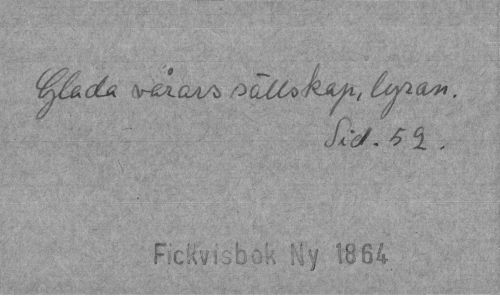 Glada vårars sällskap, lyran.
Sid. 52.
Fickvisbok Ny 1864